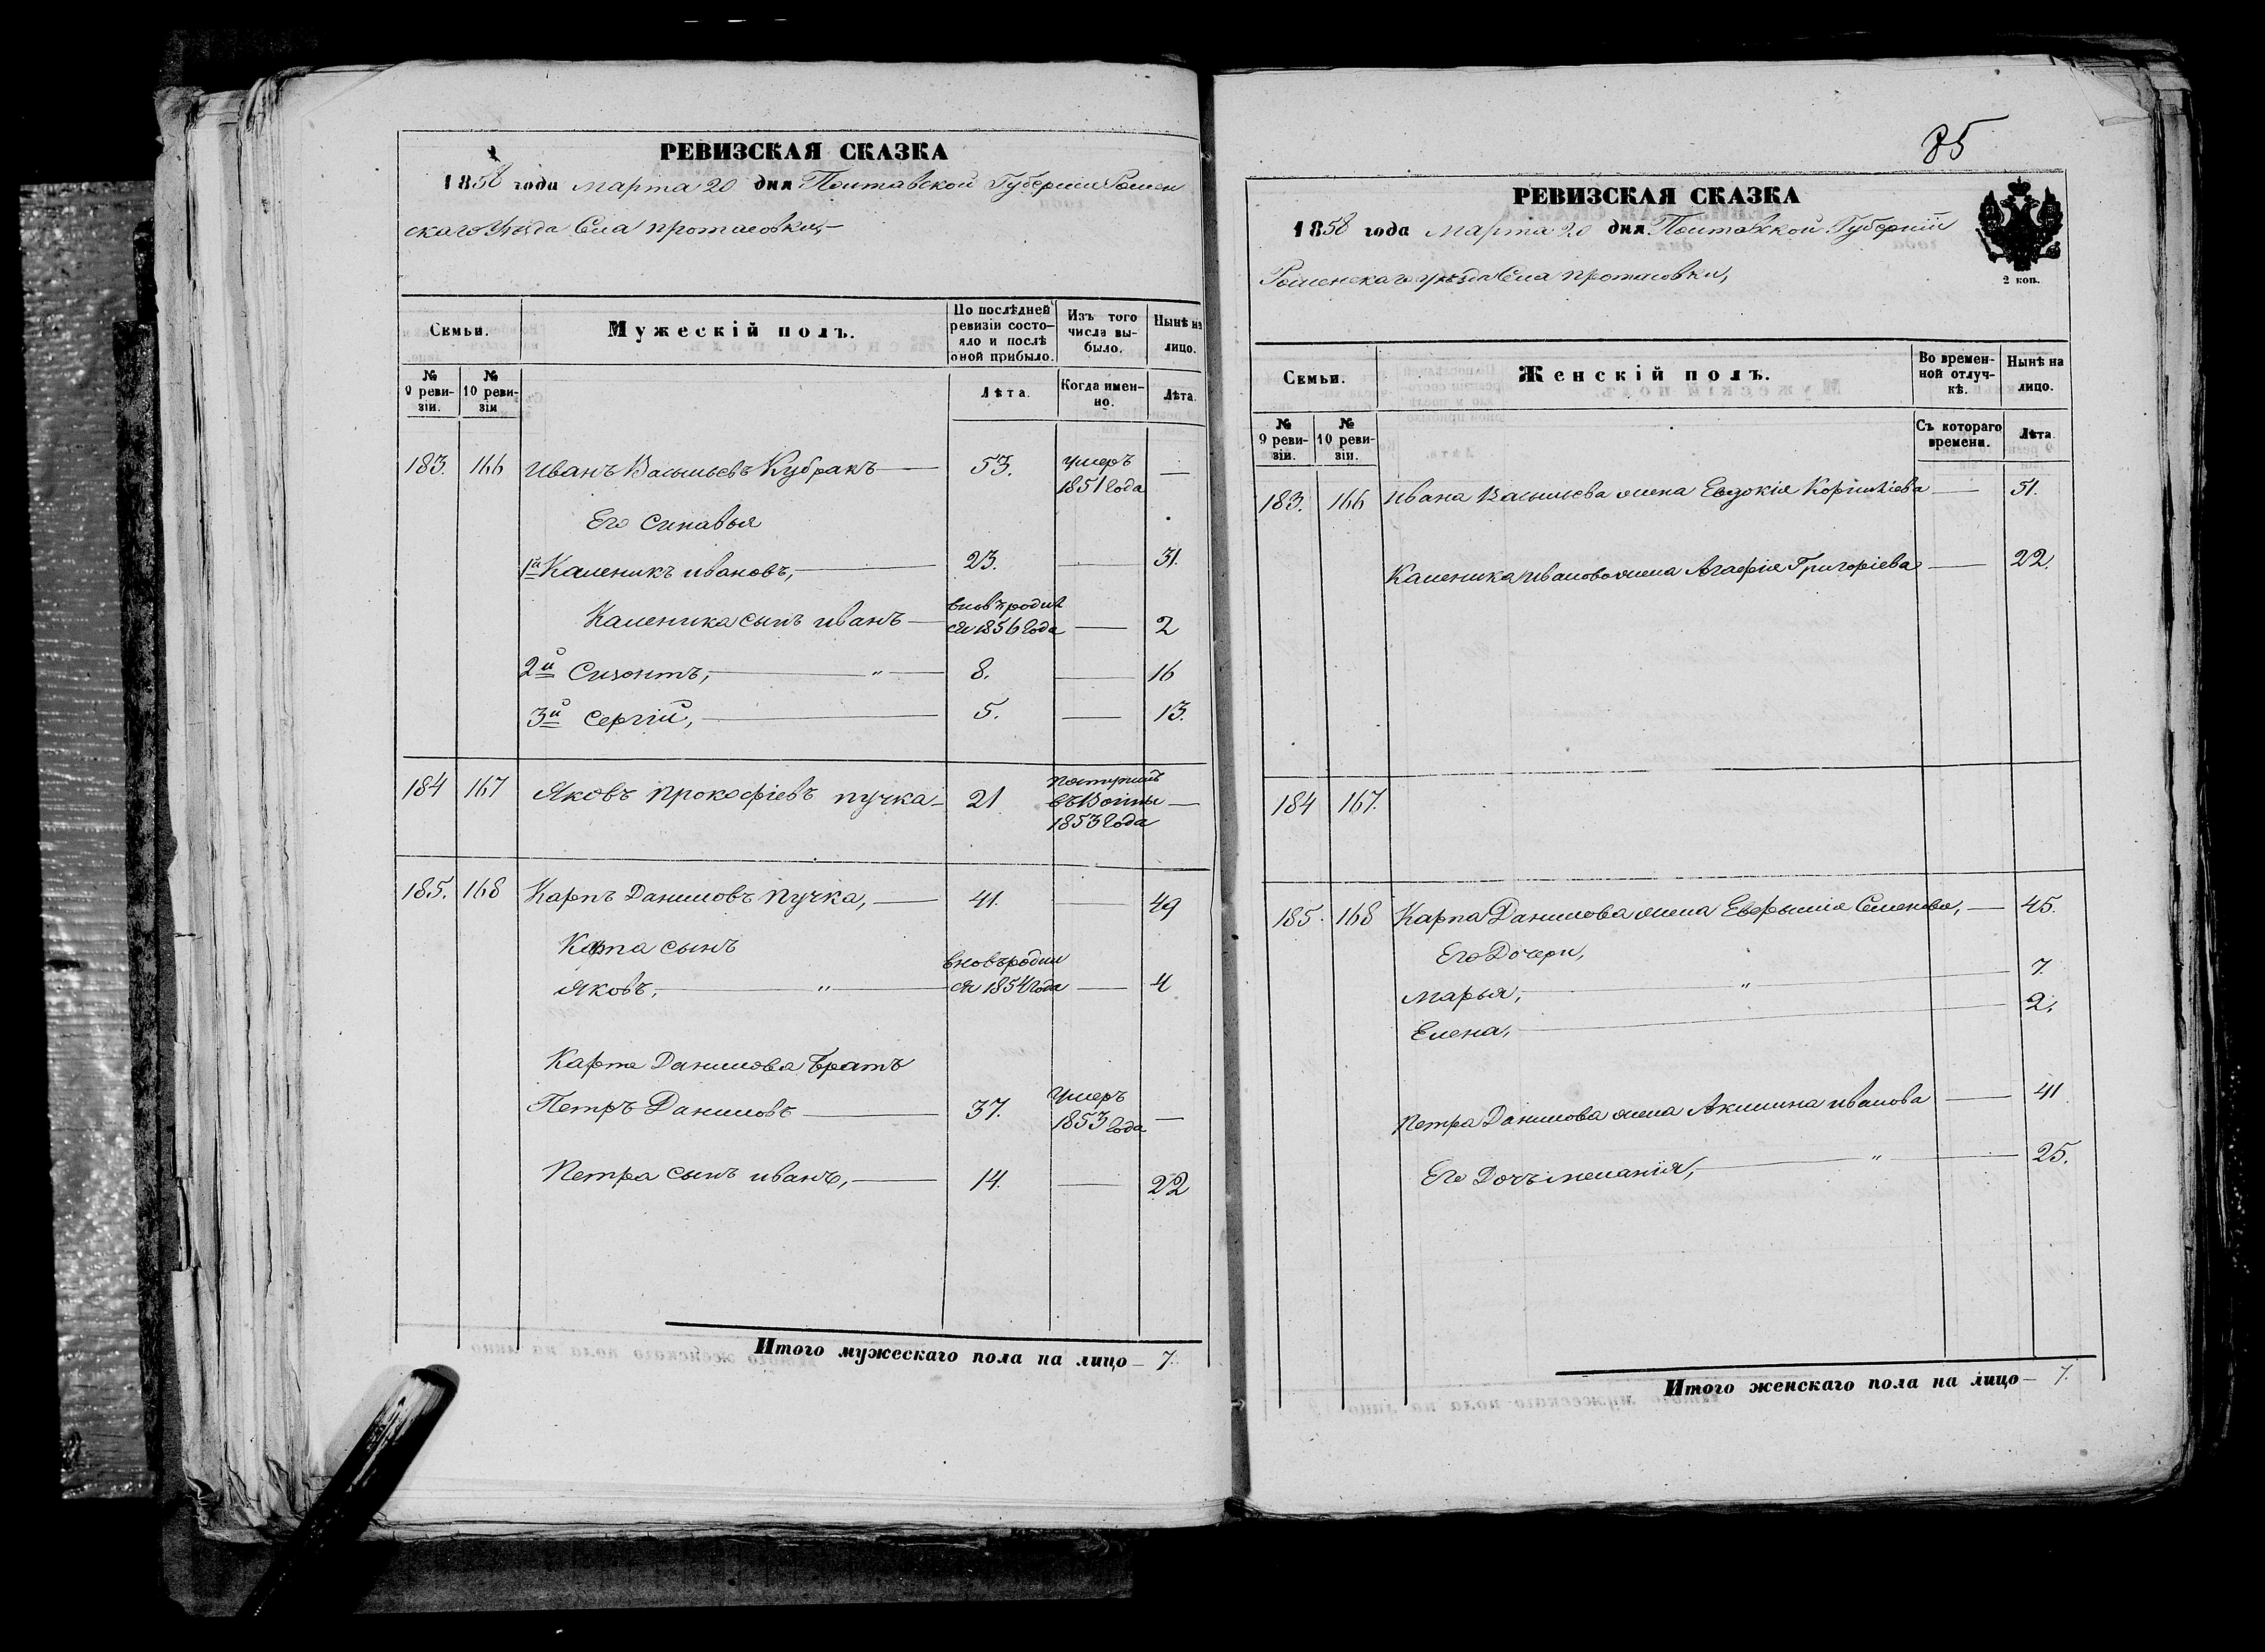 РЕВИЗСКАЯ СКАЗКА
1858 года марта 20 дня Полтавской Губернии Ромен
скаго Уезда Села протасовки,
Семьи.
Мужескій полъ.
По послѣдней ревизіи состо-
яло и послѣ
оной прибыло.
Изъ того
числа вы-
было.
Нынѣ на
лицо.
№
9 реви-
зіи.
№
10 реви-
зіи
Лѣта.
Когда имен-
но.
Лѣта.
183. 166 Иванъ Васильевъ Кубракъ — 53. умеръ —
1851 года
Его Синавья
1й Каленикъ ивановъ, — 23. — 31.
Каленика сынъ иванъ — вновь родил
ся 1856 года — 2
2й Сизонтъ, — " — 8. — 16
3й Сергій, — 5. — 13.
184 167 Яковъ прокофіевъ пучка — 21 —
1853 года
185. 168 Карпъ Даниловъ пучка, — 41. — 49
Карпа сынъ
Яковъ, — " — вновь родил
ся 1854 года — 4
Карпа Данилова Братъ
Петръ Даниловъ — 37. умеръ
1853 года —
Петра сынъ иванъ, — 14. — 22
Итого мужескаго пола на лицо — 7.
85
РЕВИЗСКАЯ СКАЗКА
1858 года марта 20 дня Полтавской Губерніи
Роменскаго уезда Села протасовки,
2 коп.
Семьи.
Женскій полъ.
Во времен-
ной отлуч-
кѣ.
Нынѣ на
лицо.
№
9 реви-
зіи.
№
10 реви-
зіи.
Съ котораго
времени.
Лѣта.
183. 166 Ивана Васильева жена Евдокія Корниліева — 51.
Каленика иванова жена Агафія Григоріева — 22.
184 167.
185. 168 Карпа Данилова жена Евфросинія Семенова, — 45.
Его Дочери,
Марья, — " — 7.
Елена, — 2.
Петра Данилова жена Акилина иванова — 41
Его Дочь меланія, — " — 25.
Итого женскаго пола на лицо — 7.